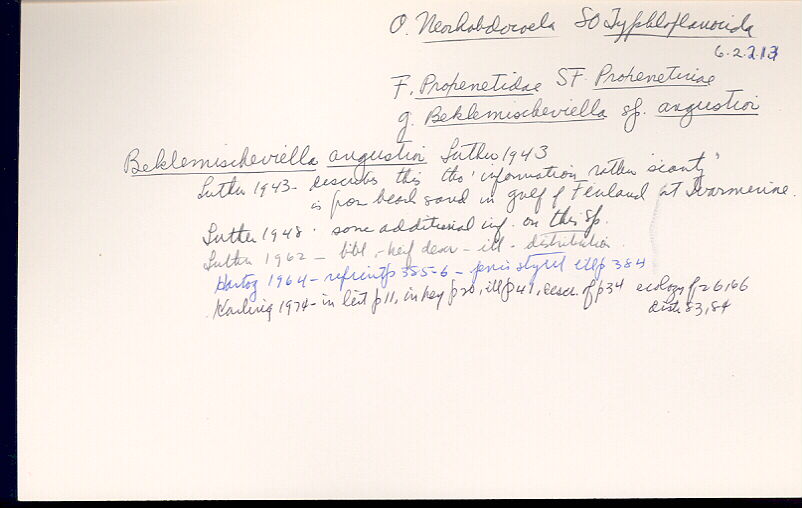 O. Neorhabdocoela SO Typhloplanoida
6.2.2.13
F. Proxenetidae SF. Proxenetinae
g. Beklemischeviella sp. angustior
Beklemischeviella angustior Luther 1943
Luther 1943 - describes this tho' information rather "scanty"
is from beach sand in gulf of Finland at Tvarminne.
Luther 1948 - some additional inf. on this sp.
Luther 1962 - bibl. - brief descr - ill - distribution.
Hartog 1964 - reprint p 385-6 - penis stylet ill p 384
Karling 1974 - in list p 11, in key p 20, ill p 41, descr. of p 34 ecology p 26, 66
distr 83, 84